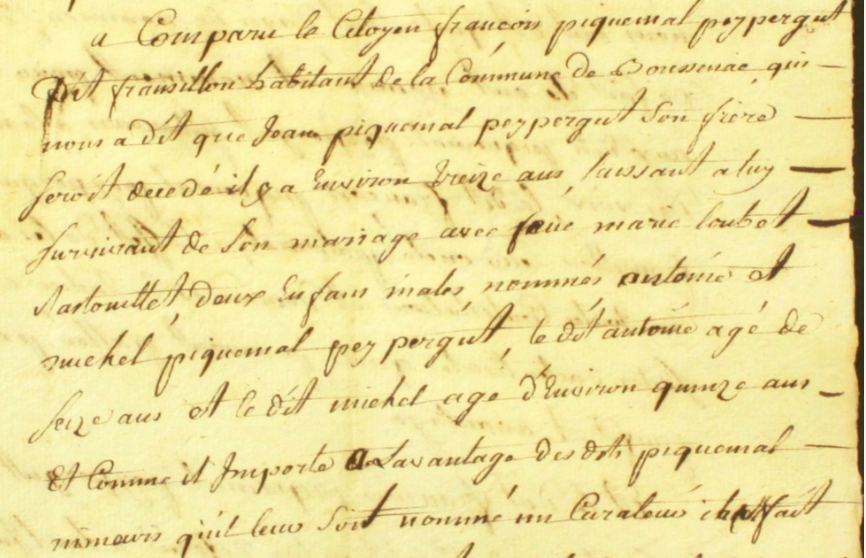 a Comparu le Citoyen francois piquemal peypergut
Dit fransillou habitant de la Commune de Boussenac qui
nous a dit que Jean piquemal peypergut son frere
seroit decedé il y a Environ treize ans, laissant a luy
survivant de son mariage avec feue marie loubet
deux Enfans males nommés antoine et
michel piquemal peypergut, le dit antoine agé de
seize ans et le dit michel agé d'Environ quinze ans
Et Comme il Importe a Lavantage desdits piquemal
mineurs qu'il leur soit nommé un Curateur il fait